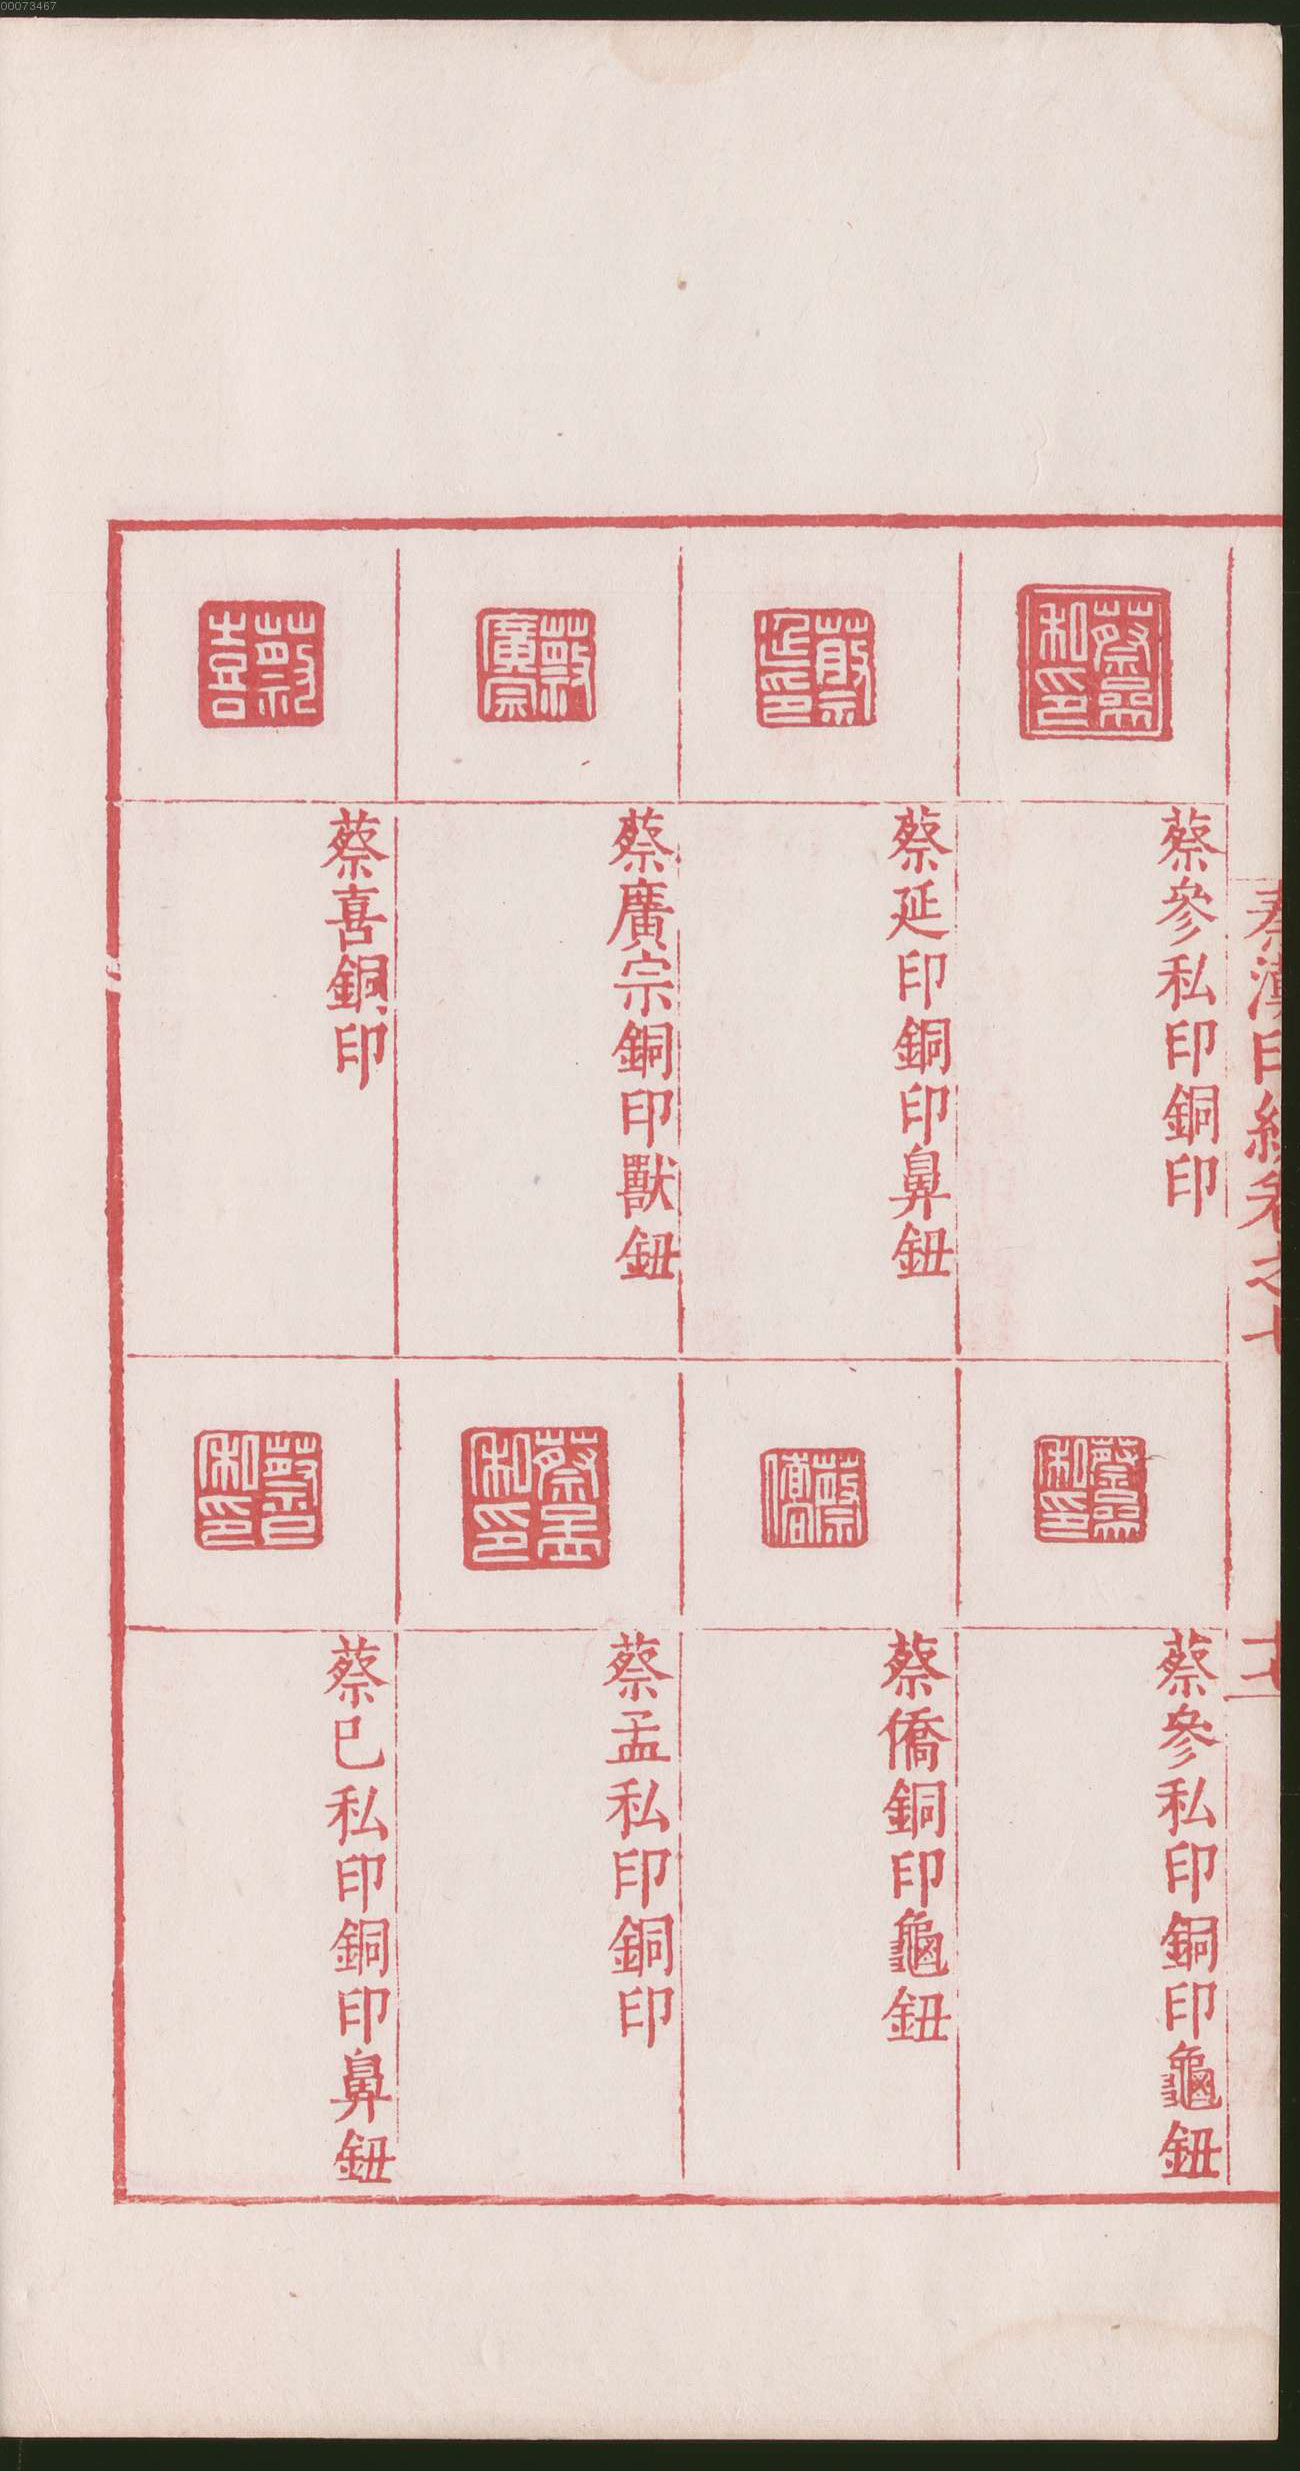 00073467
秦漢印統卷之七
蔡參私印
蔡參私印銅印
蔡延印
蔡延印銅印鼻鈕
蔡廣宗
蔡廣宗銅印獸鈕
蔡喜
蔡喜銅印
蔡參私印
蔡參私印銅印龜鈕
蔡僑
蔡僑銅印龜鈕
蔡孟私印
蔡孟私印銅印
蔡巳私印
蔡巳私印銅印鼻鈕